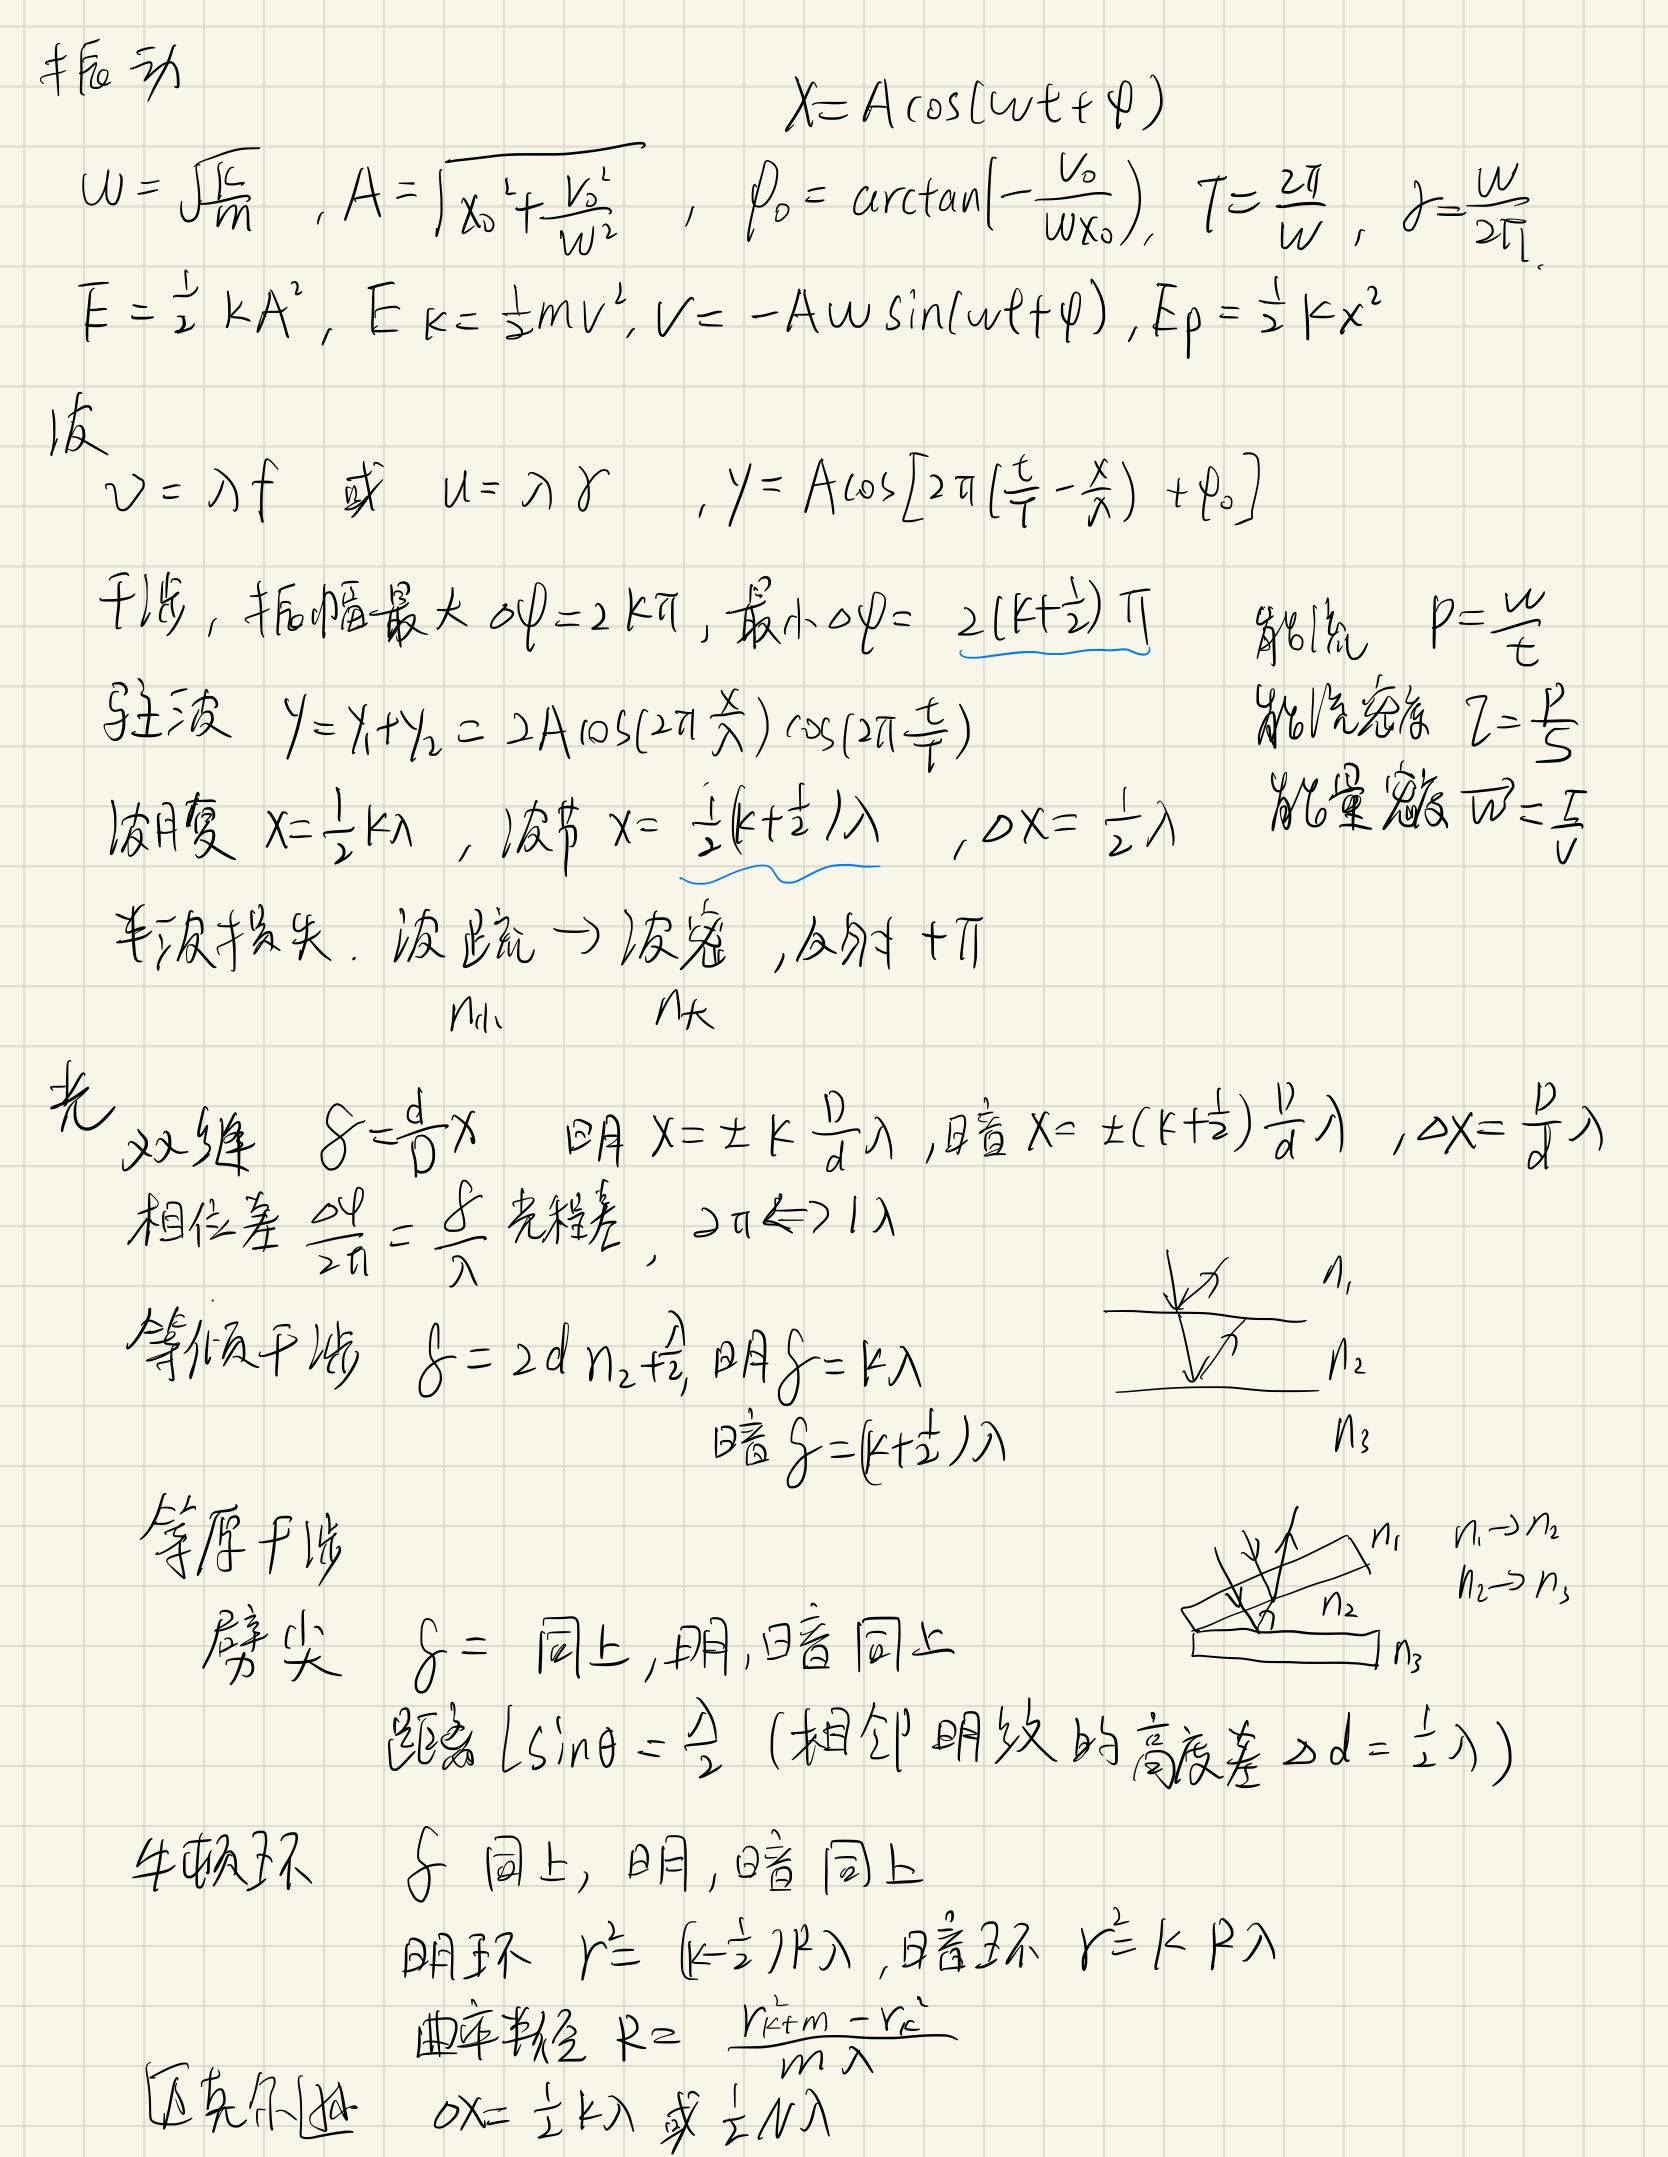 振动
X=Acos(ωt+φ)
ω=√(k/m) , A=√(x₀²+v₀²/ω²) , φ₀=arctan(-v₀/ωx₀), T=2π/ω , γ=ω/2π.
E=½kA², Eκ=½mv², v=-Aωsin(ωt+φ), Ep=½kx²
波
ν=λf 或 u=λγ , y=Acos[2π(t/T-x/λ)+φ₀]
干涉, 振幅最大 Δφ=2kπ, 最小Δφ= 2(k+½)π
能流 P=w/t
驻波 y=y₁+y₂=2Acos(2π x/λ)cos(2π t/T)
能流密度 I=P/S
波腹 x=½kλ , 波节 x=½(k+½)λ , Δx=½λ
能量密度 w̄=I/v
半波损失. 波疏→波密 , 反射+π
n小 n大
光
双缝 δ=d/D x 明 x=±k D/d λ ,暗 x=±(k+½) D/d λ , Δx=D/d λ
相位差 Δφ/2π=δ/λ 光程差, 2π⇔1λ
等倾干涉 δ=2dn₂+λ/2, 明δ=kλ
暗δ=(k+½)λ
n₁
n₂
n₃
等厚干涉
n₁ n₁→n₂
n₂ n₂→n₃
n₃
劈尖 δ= 同上,明,暗同上
距离 Lsinθ=λ/2 (相邻明纹的高度差Δd=½λ)
牛顿环 δ 同上, 明,暗同上
明环 r²=(k-½)Rλ ,暗环 r²=kRλ
曲率半径 R=(r²k+m - rk²)/mλ
迈克尔逊 Δx=½kλ 或 ½Nλ